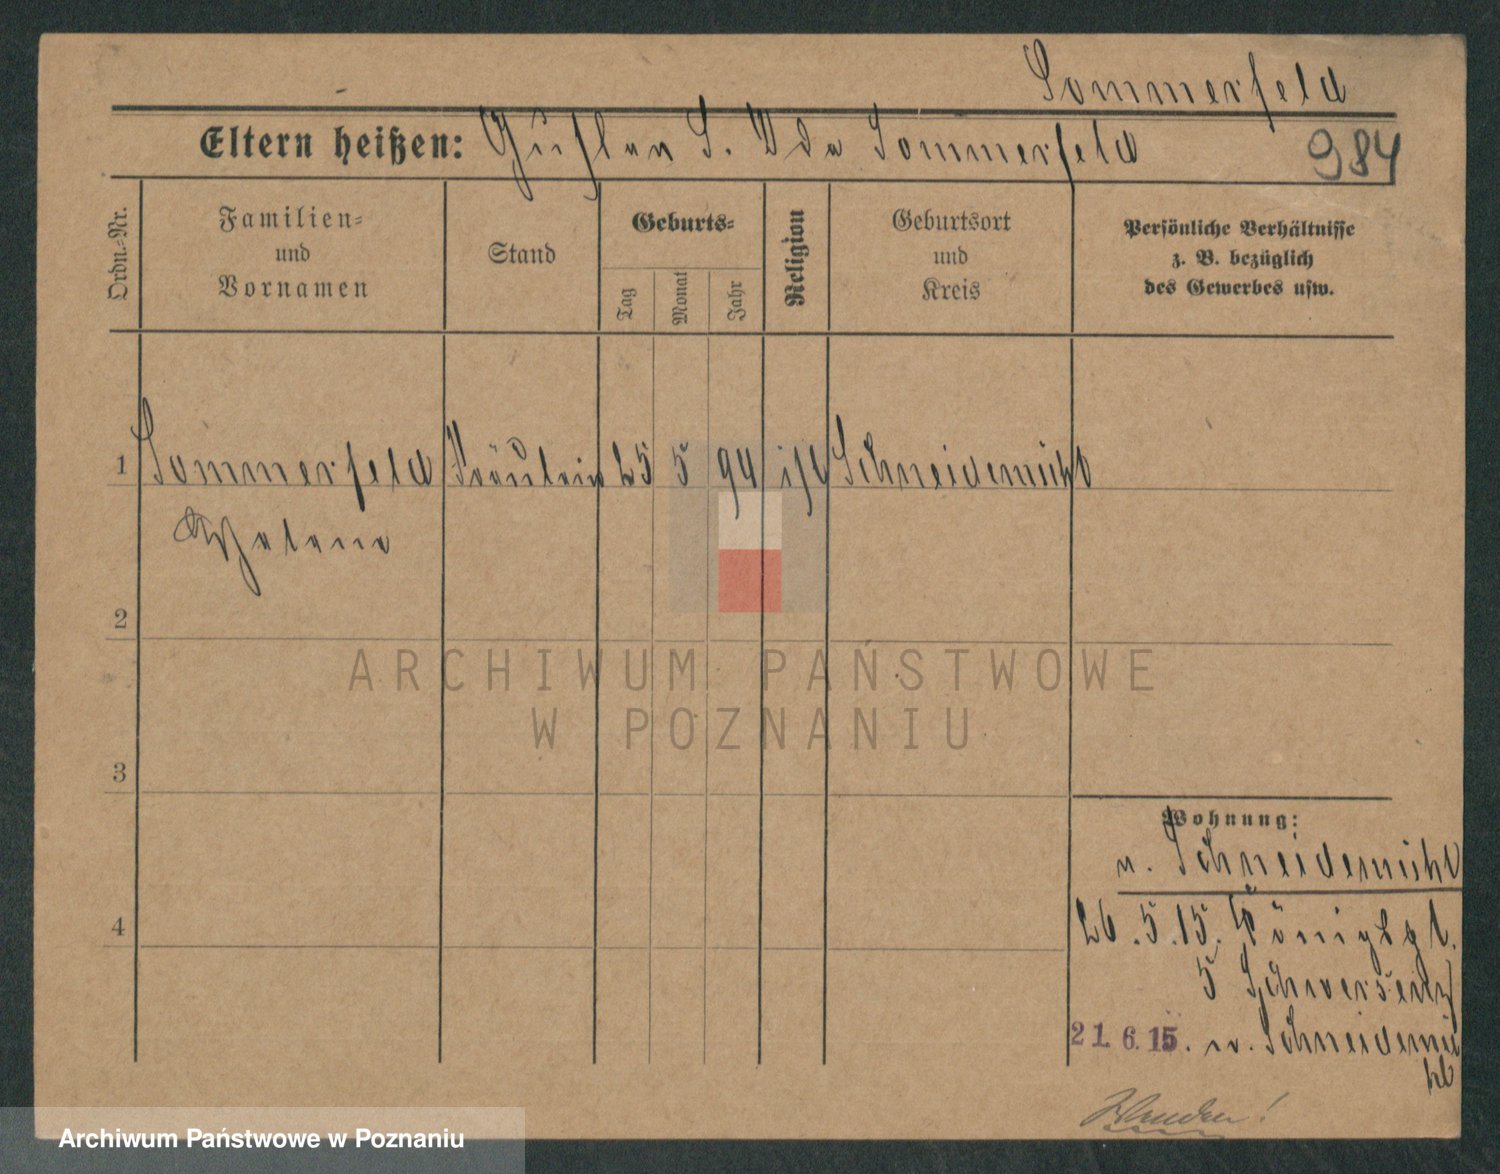 Sommerfeld
Eltern heißen: Gustav S. Ida Sommerfeld
984
Ordn.-Nr.
Familien-
und
Vornamen
Stand
Geburts-
Tag
Monat
Jahr
Religion
Geburtsort
und
Kreis
Persönliche Verhältnisse
z. B. bezüglich
des Gewerbes usw.
1 Sommerfeld Fräulein 25 5 94 isr Schneidemühl
Helene
2
3
4
ARCHIWUM PAŃSTWOWE
W POZNANIU
Wohnung:
n. Schneidemühl
26.5.15. Königsgt.
5 Schwersenz
21.6.15. n. Schneidemü
hl
Archiwum Państwowe w Poznaniu